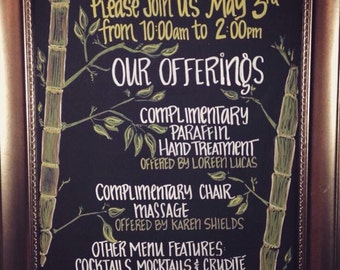 Please Join Us May 3rd
from 10:00am to 2:00pm
OUR OFFERINGS
COMPLIMENTARY
PARAFFIN
HAND TREATMENT
OFFERED BY LOREEN LUCAS
COMPLIMENTARY CHAIR
MASSAGE
OFFERED BY KAREN SHIELDS
OTHER MENU FEATURES:
COCKTAILS, MOCKTAILS & CRUDITE